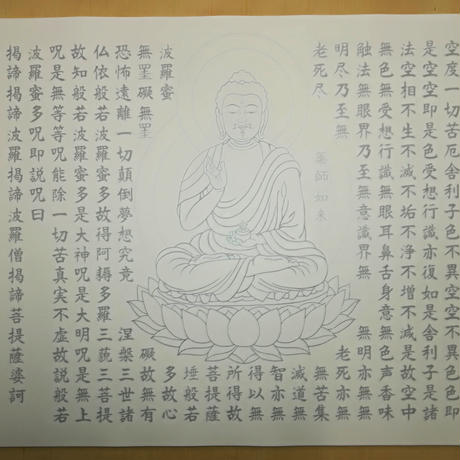 空度一切苦厄舎利子色不異空空不異色色即
是空空即是色受想行識亦復如是舎利子是諸
法空相不生不滅不垢不浄不増不減是故空中
無色無受想行識無眼耳鼻舌身意無色声香味
触法無眼界乃至無意識界無 無明亦無
明尽乃至無 老死亦無
老死尽 無苦集
薬師如来
滅道無
智亦無
得以無
所得故
菩提薩
埵般若
波羅蜜 多故心
無罣礙無罣 礙故無有
恐怖遠離一切顛倒夢想究竟 涅槃三世諸
仏依般若波羅蜜多故得阿耨多羅三藐三菩提
故知般若波羅蜜多是大神呪是大明呪是無上
呪是無等等呪能除一切苦真実不虚故説般若
波羅蜜多呪即説呪曰
揭諦揭諦波羅揭諦波羅僧揭諦菩提薩婆訶